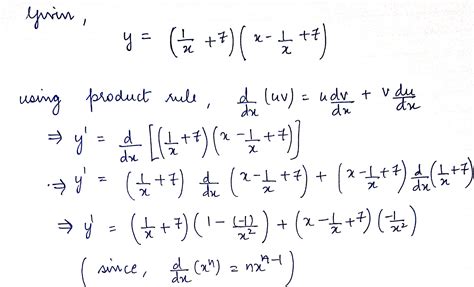 Given,
y = (1/x + 7)(x - 1/x + 7)
using product rule, d/dx (uv) = u dv/dx + v du/dx
⇒ y' = d/dx [(1/x + 7)(x - 1/x + 7)]
⇒ y' = (1/x + 7) d/dx (x - 1/x + 7) + (x - 1/x + 7) d/dx (1/x + 7)
⇒ y' = (1/x + 7)(1 - (-1)/x²) + (x - 1/x + 7)(-1/x²)
(since, d/dx (xⁿ) = nxⁿ⁻¹)